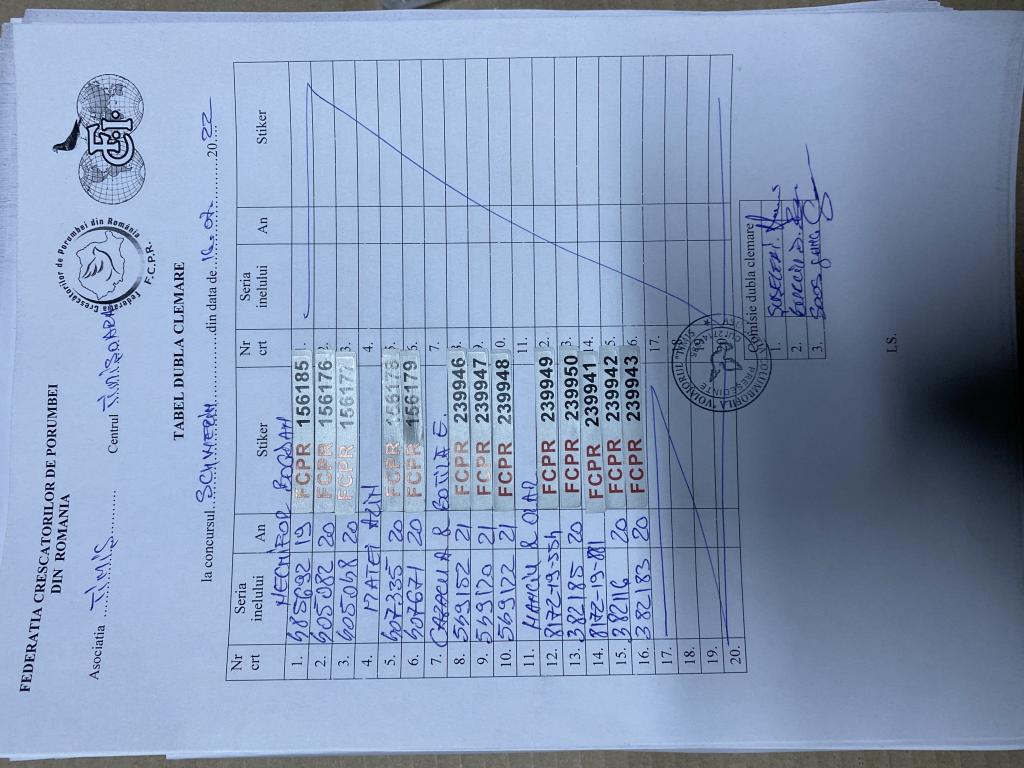 FEDERATIA CRESCATORILOR DE PORUMBEI
DIN ROMANIA
Federatia Crescătorilor de Porumbei din România
F.C.P.R.
FCI
Asociatia TIMIS Centrul TIMISOARA
TABEL DUBLA CLEMARE
la concursul SCHWERIN din data de 16.07 2022
Nr crt Seria inelului An Stiker Nr crt Seria inelului An Stiker
NECHIFOR BOGDAN
1. 685692 19 FCPR 156185 1.
2. 605082 20 FCPR 156176 2.
3. 605048 20 FCPR 156177 3.
4. MATEI ALIN 4.
5. 607335 20 FCPR 156178 5.
6. 607671 20 FCPR 156179 6.
7. & BOTILA E. 7.
8. 569152 21 FCPR 239946 8.
9. 569120 21 FCPR 239947 9.
10. 569122 21 FCPR 239948 10.
11. 11.
12. 8172-19-554 FCPR 239949 12.
13. 382185 20 FCPR 239950 13.
14. 8172-19-881 FCPR 239941 14.
15. 382116 20 FCPR 239942 15.
16. 382183 20 FCPR 239943 16.
17. 17.
18. 18.
19. 19.
20. 20.
PRESEDINTE
Comisie dubla clemare
1.
2.
3.
LS.